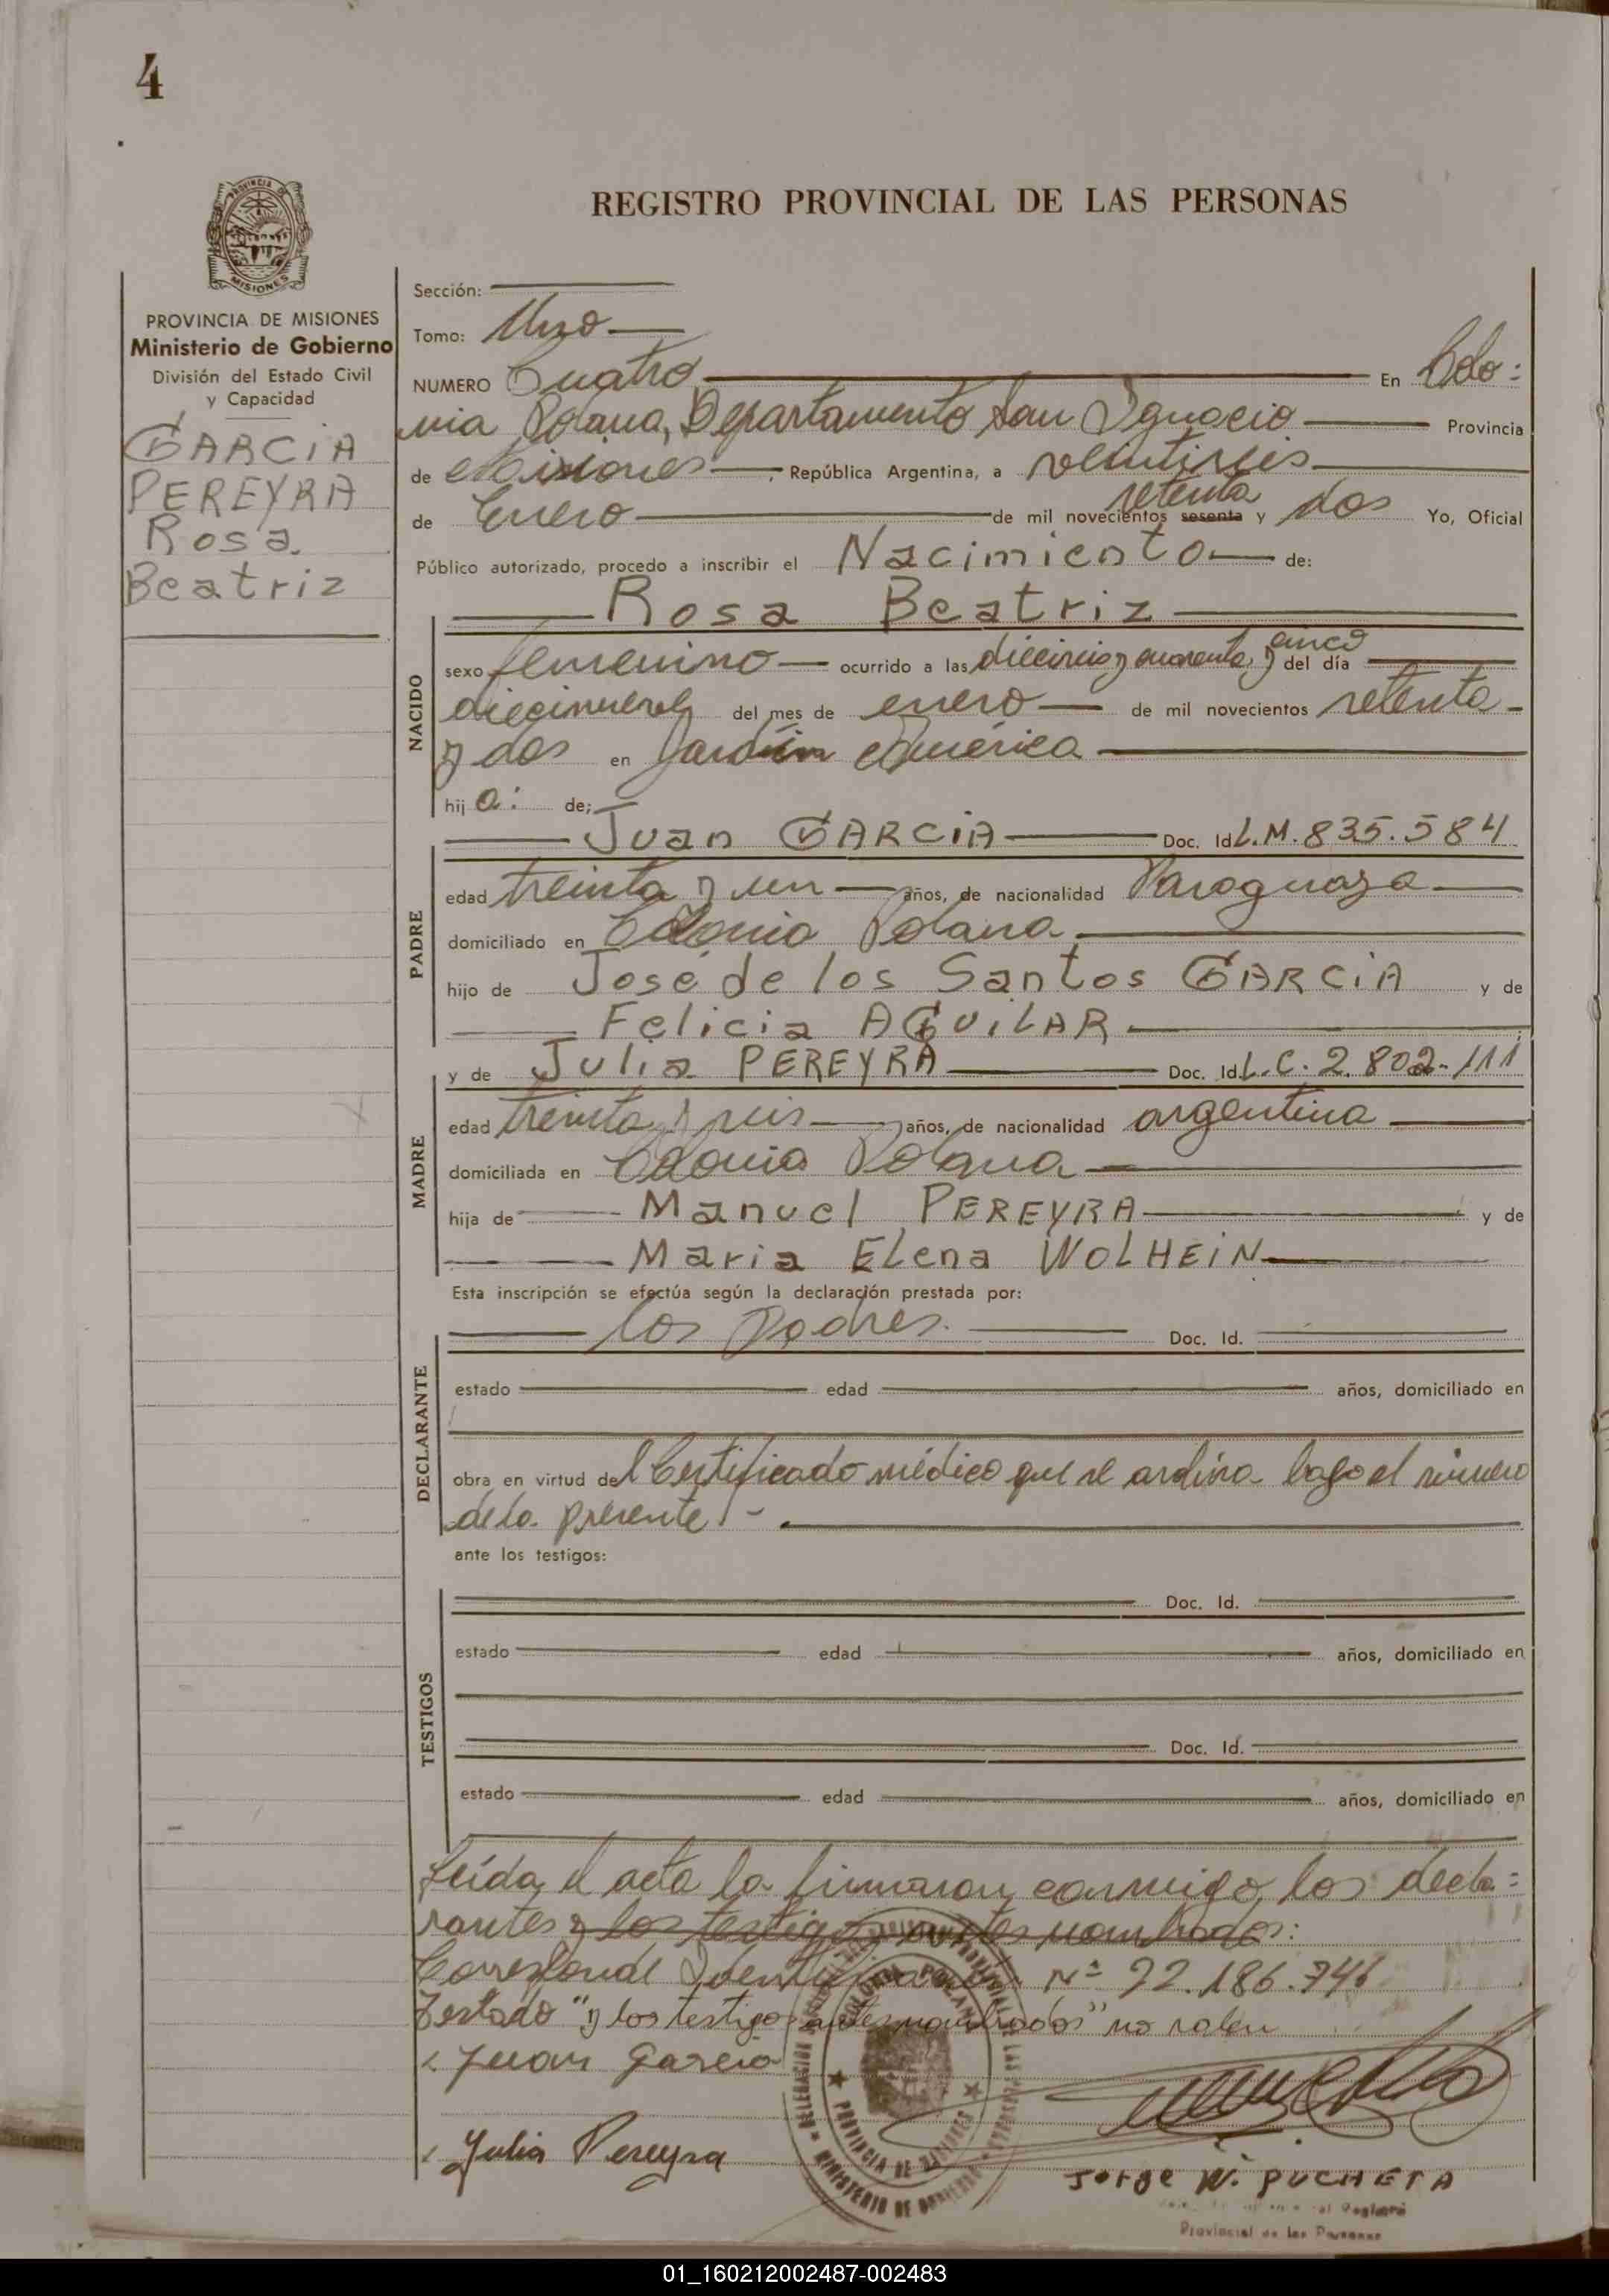 4
REGISTRO PROVINCIAL DE LAS PERSONAS
MISIONES
PROVINCIA DE MISIONES
Ministerio de Gobierno
División del Estado Civil
y Capacidad
GARCIA
PEREYRA
Rosa
Beatriz
Sección:
Tomo: Uno
NUMERO Cuatro En Colo=
nia Polana, Departamento San Ignacio Provincia
de Misiones, República Argentina, a veintiseis
de Enero de mil novecientos sesenta setenta y dos Yo, Oficial
Público autorizado, procedo a inscribir el Nacimiento de:
Rosa Beatriz
NACIDO
sexo femenino ocurrido a las dieciseis y cuarenta y cinco del día
diecinueve del mes de enero de mil novecientos setenta
y dos en Jardín América
hij a: de:
Juan GARCIA Doc. Id L.M. 835.584
PADRE
edad treinta y un años, de nacionalidad Paraguaya
domiciliado en Colonia Polana
hijo de José de los Santos GARCIA y de
Felicia AGUILAR
MADRE
y de Julia PEREYRA Doc. Id. L.C. 2.802.111
edad treinta y seis años, de nacionalidad argentina
domiciliada en Colonia Polana
hija de Manuel PEREYRA y de
Maria Elena WOLHEIN
Esta inscripción se efectúa según la declaración prestada por:
los padres. Doc. Id.
DECLARANTE
estado edad años, domiciliado en
obra en virtud del Certificado médico que se archiva bajo el número
de la presente -.
ante los testigos:
TESTIGOS
Doc. Id.
estado edad años, domiciliado en
Doc. Id.
estado edad años, domiciliado en
Leída el acta la firmaron conmigo los decla=
rantes y los testigos antes nombrados:
Corresponde Identificación Nº 22.186.741
Testado "y los testigos antes nombrados" no valen
x Juan Garcia
x Julia Pereyra
COLONIA POLANA
PROVINCIA DE MISIONES
MINISTERIO DE GOBIERNO
Jorge W. PUCHETA
Provincial de las Personas
01_160212002487-002483